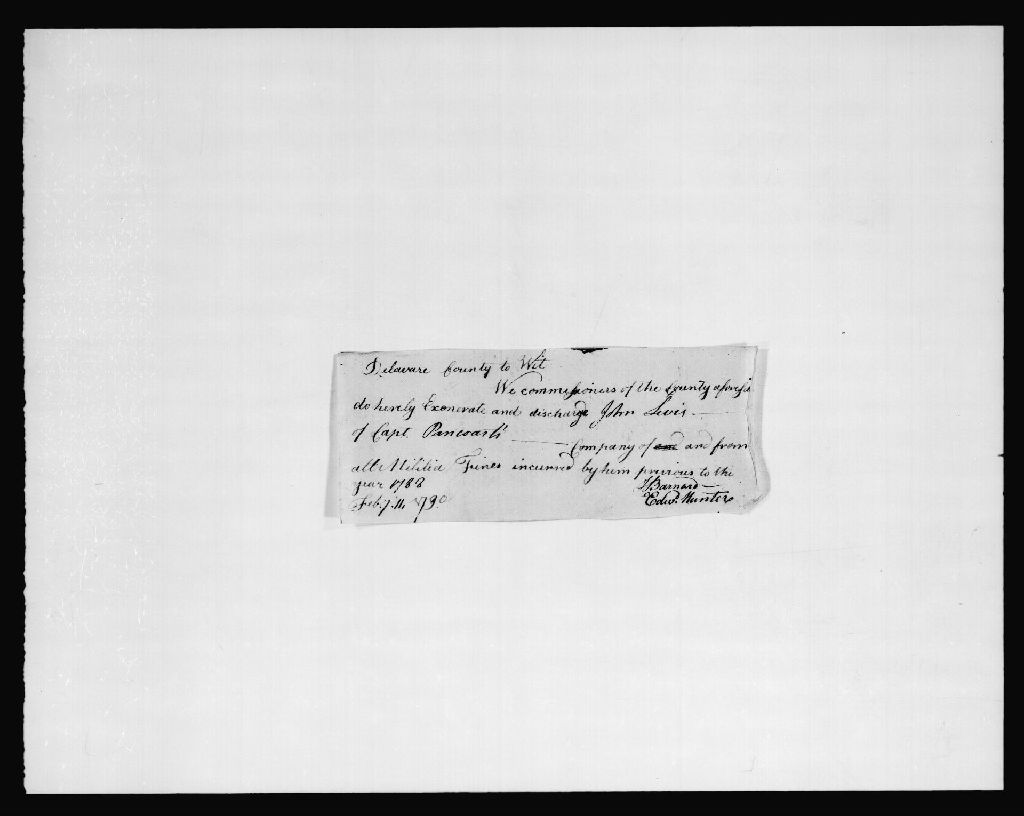 Delaware County to Wit
We commissioners of the County aforesd
do hereby Exonerate and discharge John Lewis
of Capt Pancoast's Company of and and from
all Militia Fines incurred by him previous to the
year 1788
Feby. 14 1790
J Barnard
Edwd. Hunter